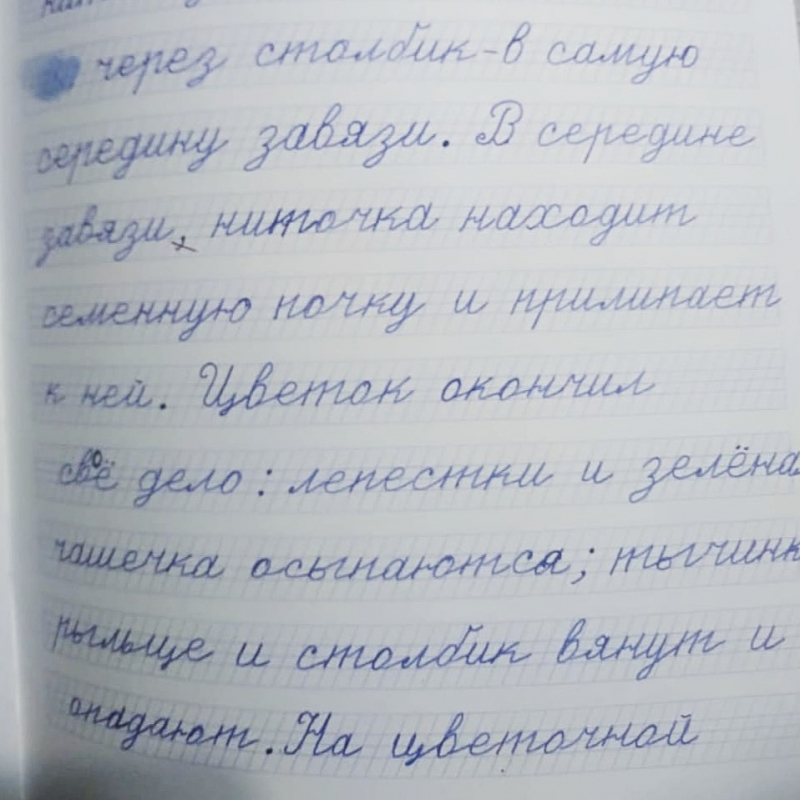 через столбик-в самую
середину завязи. В середине
завязи, ниточка находит
семенную почку и прилипает
к ней. Цветок окончил
своё дело: лепестки и зелёная
чашечка осыпаются; тычинк
рыльце и столбик вянут и
опадают. На цветочной